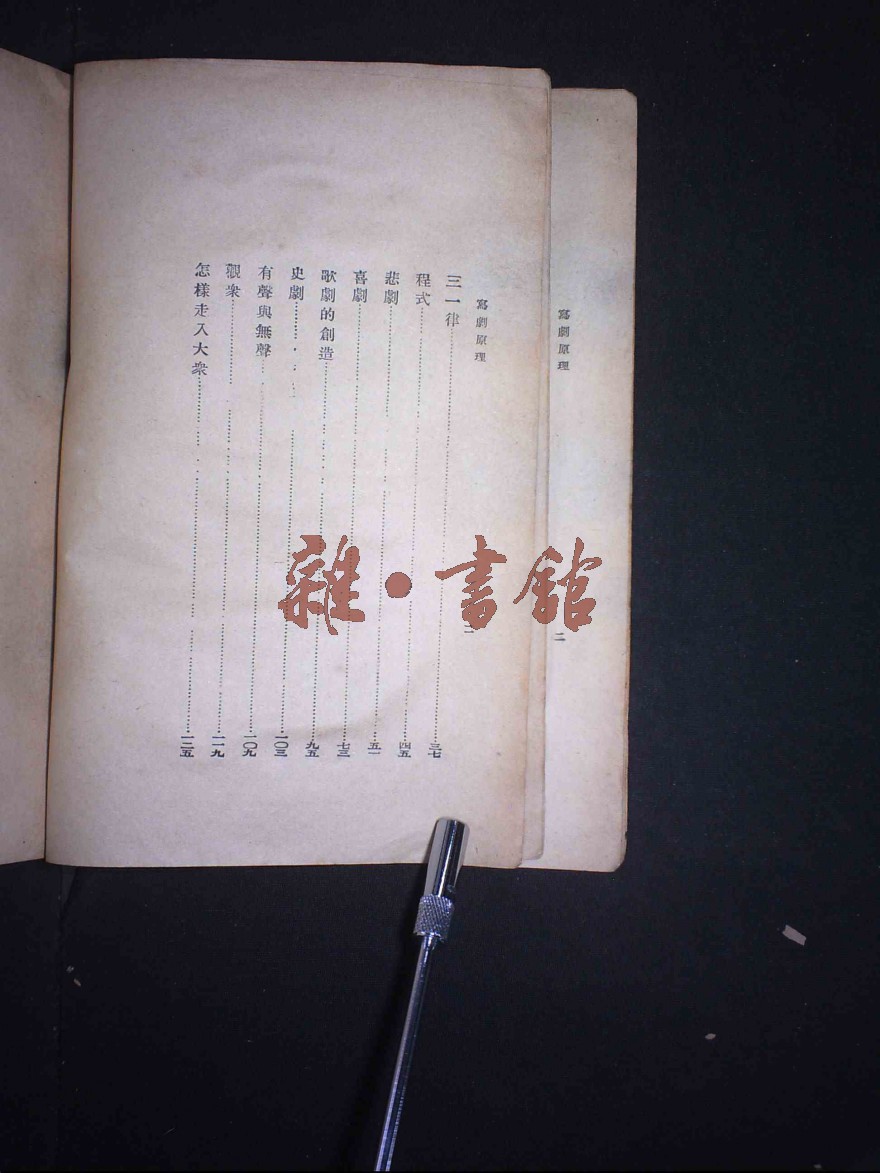 寫劇原理
二
寫劇原理
二
三一律 三七
程式 四五
悲劇 五一
喜劇 七三
歌劇的創造 九五
史劇 一〇三
有聲與無聲 一〇九
觀衆 一一九
怎樣走入大衆 一二五
雜·書館